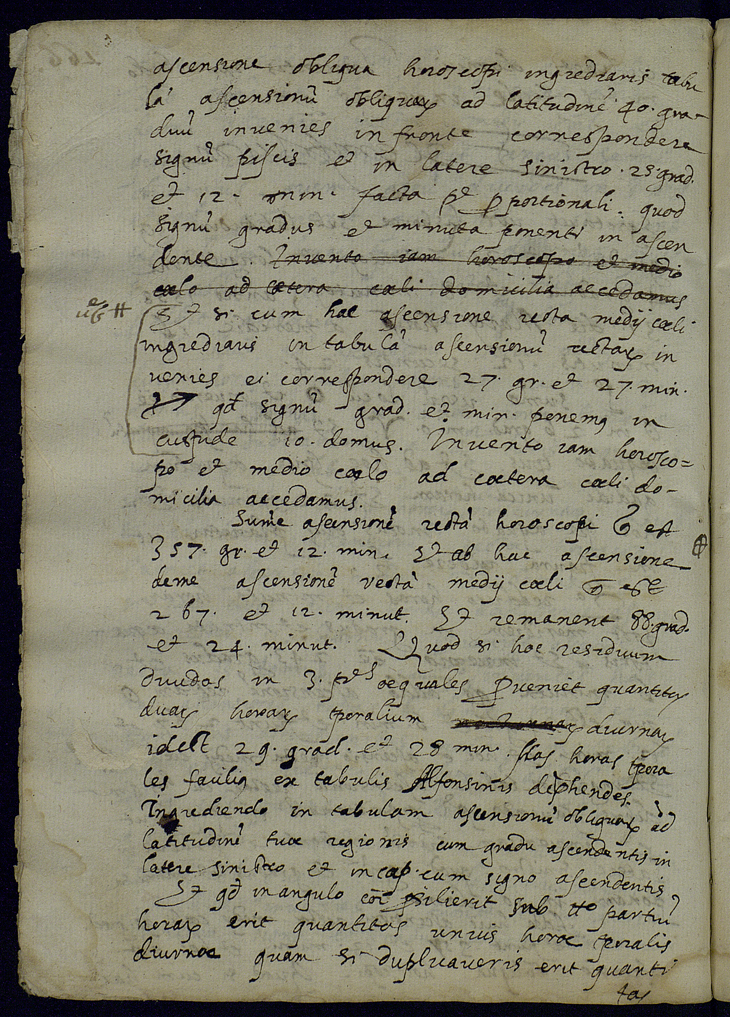 ascensione obliqua horoscopi ingrediaris tabu
lā ascensionū obliquaꝝ ad latitudinē 40. gra-
duū invenies in fronte correspondere
signū piscis et in latere sinistro. 25. grad.
et 12. min. facta pte ꝓportionali: quod
signū gradus et minuta ponenti in ascen
dente. Invento iam horoscopo et medio
cœlo ad cœtera cœli domicilia accedamus
Et si cum hac ascensione recta medij cœli
ingrediaris in tabulā ascensionū rectaꝝ in
venies ei correspondere 27. gr. et 27. min.
qđ signū grad. et min. ponemꝰ in
cuspide 10. domus. Invento iam horosco=
po et medio cœlo ad cœtera cœli do-
micilia accedamus.
Sume ascensionē rectā horoscopi est
357. gr. et 12. min. Et ab hac ascensione
deme ascensionē rectā medij cœli est
267. et 12. minut. Et remanent 88. grad.
et 24. minut. Quod si hoc residuum
dividas in 3. ptes œquales ꝓveniet quantitas
duaꝝ horaꝝ tporalium diurnaꝝ
idest 29. grad. et 28 min. Has horas tpora
les faciliꝰ ex tabulis Alfonsinis dephendes.
Ingrediendo in tabulam ascensionū obliquaꝝ ad
latitudinē tuœ regionis cum gradu ascendentis in
latere sinistro et in cap. cum signo ascendentis
Et qđ in angulo cōi sub tto partiū
horaꝝ erit quantitas unius horœ tporalis
diurnœ quam si duplicaveris erit quanti
tas